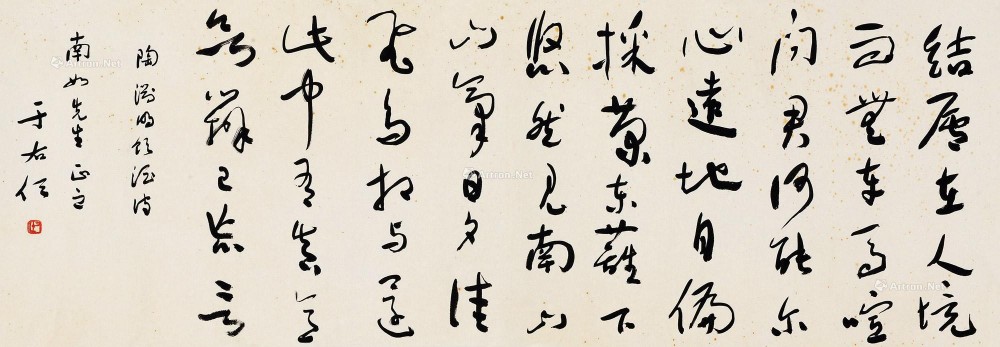 结庐在人境
而无车马喧
问君何能尔
心远地自偏
採菊东篱下
悠然见南山
山气日夕佳
飞鸟相与还
此中有真意
欲辨已忘言
陶渊明饮酒诗
南如先生正之
于右任
Artron.Net
Artron.Net
Artron.Net
Artron.Net
Artron.Net